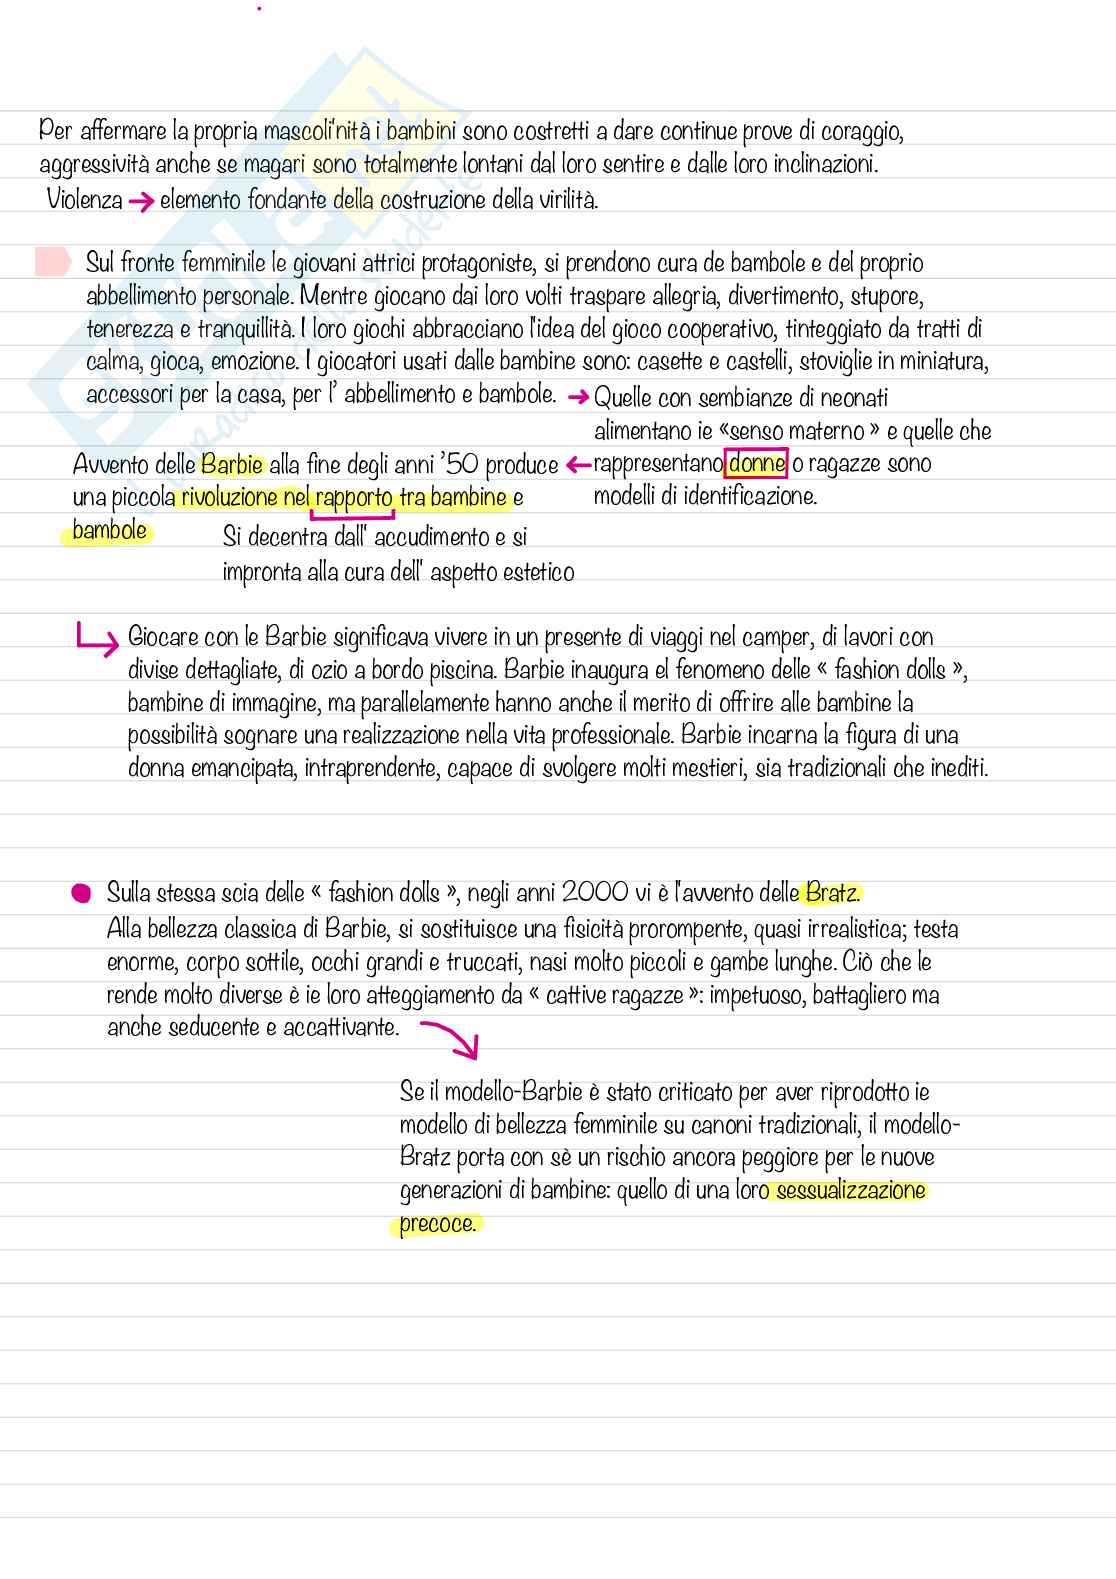 Per affermare la propria mascoli'nità i bambini sono costretti a dare continue prove di coraggio,
aggressività anche se magari sono totalmente lontani dal loro sentire e dalle loro inclinazioni.
Violenza → elemento fondante della costruzione della virilità.
Sul fronte femminile le giovani attrici protagoniste, si prendono cura de bambole e del proprio
abbellimento personale. Mentre giocano dai loro volti traspare allegria, divertimento, stupore,
tenerezza e tranquillità. I loro giochi abbracciano l'idea del gioco cooperativo, tinteggiato da tratti di
calma, gioca, emozione. I giocatori usati dalle bambine sono: casette e castelli, stoviglie in miniatura,
accessori per la casa, per l' abbellimento e bambole. →
Quelle con sembianze di neonati
alimentano ie «senso materno » e quelle che
rappresentano donne o ragazze sono
modelli di identificazione.
Avvento delle Barbie alla fine degli anni '50 produce ←
una piccola rivoluzione nel rapporto tra bambine e
bambole
Si decentra dall' accudimento e si
impronta alla cura dell' aspetto estetico
Giocare con le Barbie significava vivere in un presente di viaggi nel camper, di lavori con
divise dettagliate, di ozio a bordo piscina. Barbie inaugura el fenomeno delle « fashion dolls »,
bambine di immagine, ma parallelamente hanno anche il merito di offrire alle bambine la
possibilità sognare una realizzazione nella vita professionale. Barbie incarna la figura di una
donna emancipata, intraprendente, capace di svolgere molti mestieri, sia tradizionali che inediti.
Sulla stessa scia delle « fashion dolls », negli anni 2000 vi è l'avvento delle Bratz.
Alla bellezza classica di Barbie, si sostituisce una fisicità prorompente, quasi irrealistica; testa
enorme, corpo sottile, occhi grandi e truccati, nasi molto piccoli e gambe lunghe. Ciò che le
rende molto diverse è ie loro atteggiamento da « cattive ragazze »: impetuoso, battagliero ma
anche seducente e accattivante.
Se il modello-Barbie è stato criticato per aver riprodotto ie
modello di bellezza femminile su canoni tradizionali, il modello-
Bratz porta con sè un rischio ancora peggiore per le nuove
generazioni di bambine: quello di una loro sessualizzazione
precoce.